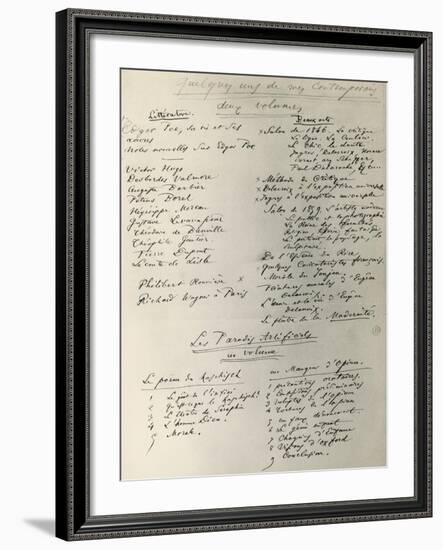 Quelques uns de mes Contemporains
deux volumes
Littérature
Edgar Poe, sa vie et ses
œuvres
Notes nouvelles sur Edgar Poe
Victor Hugo
Desbordes Valmore
Auguste Barbier
Petrus Borel
Hégésippe Moreau
Gustave Levavasseur
Théodore de Banville
Théophile Gautier
Pierre Dupont
Leconte de Lisle
Philibert Rouvière x
Richard Wagner à Paris
Beaux arts
x Salon de 1846.
Le Chic, le doute
Ingres, Delacroix, Horace
Vernet, Ary Scheffer,
Paul Delaroche, &c...
x Méthode de Critique
x Delacroix à l'exposition universelle
x Ingres à l'exposition universelle
x Salon de 1859. L'artiste moderne
Le public et la photographie
La Reine des facultés
Religion, fantaisie
Le portrait, le paysage, la
sculpture.
De l'Essence du Rire
Quelques Caricaturistes français
Morale du Joujou.
Peintures murales d'Eugène
Delacroix.
L'œuvre et la vie d'Eugène
Delacroix.
Le peintre de la Modernité.
Les Paradis Artificiels
un volume
Le poème du Haschisch
1 Le goût de l'infini
2 Qu'est-ce que le Haschisch?
3 Le théâtre de Séraphin
4 L'homme Dieu.
5 Morale.
un Mangeur d'Opium.
1 précautions oratoires.
2 Confessions préliminaires
3 Voluptés de l'opium
4 Tortures de l'opium
5 un faux dénouement
6 Le génie enfant
7 Chagrins d'Enfance
8 Visions d'Oxford
9 Conclusion.